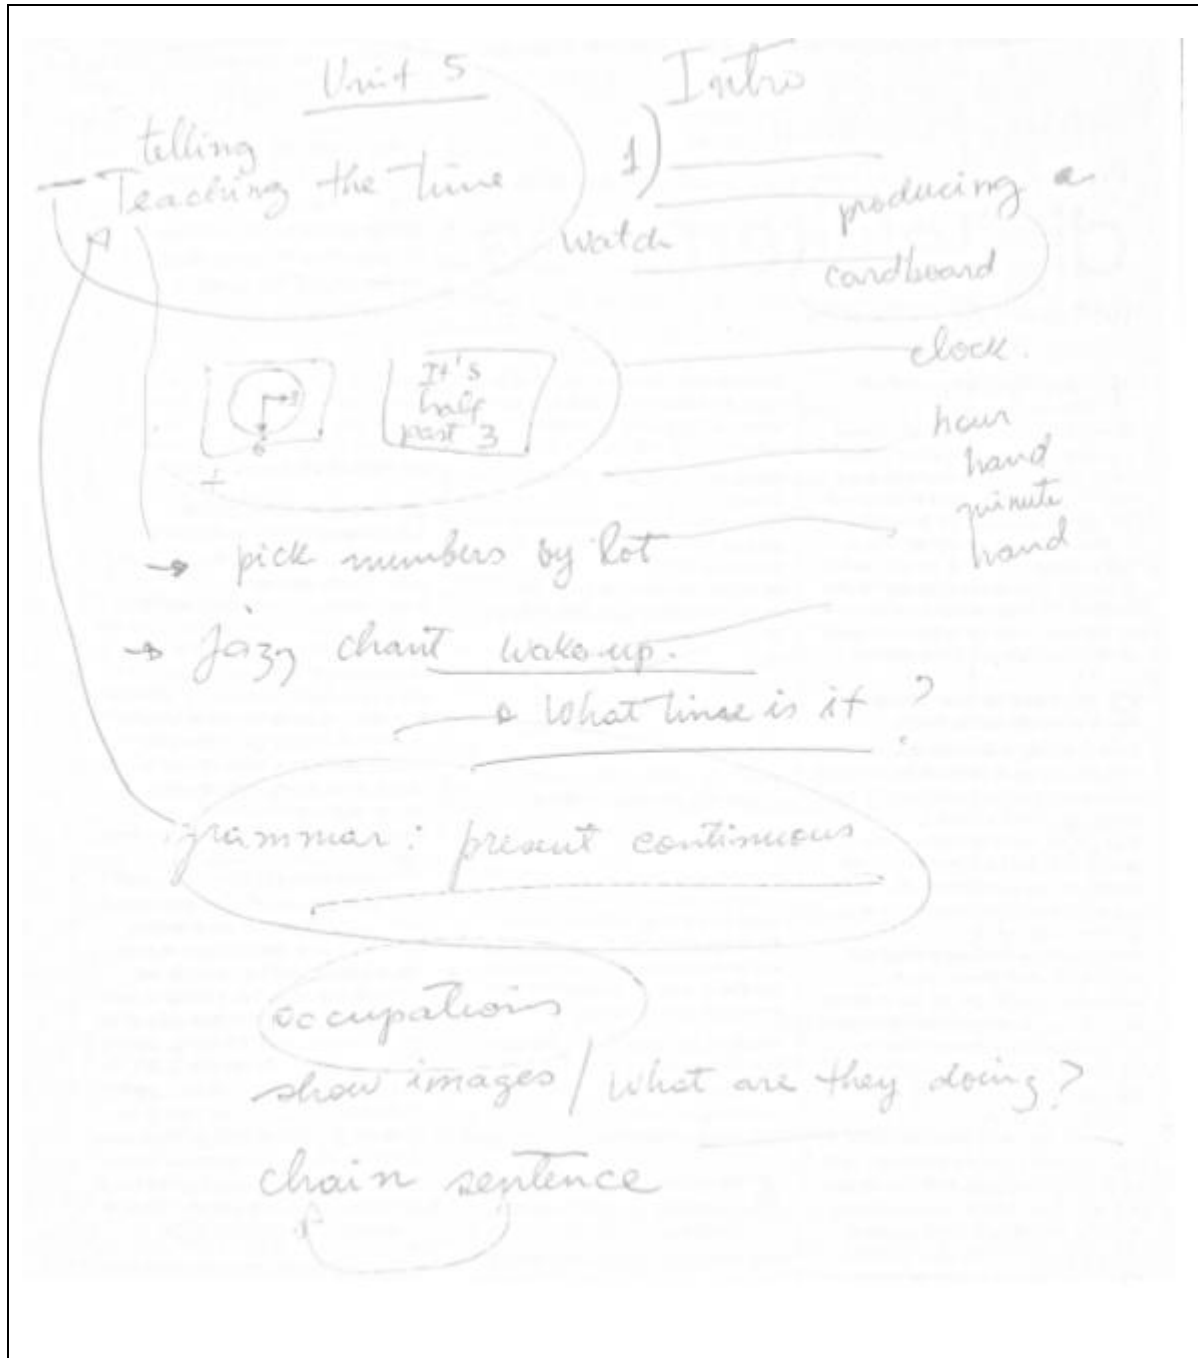 Unit 5
telling
Teaching the time
Intro
1)
producing a
watch
cardboard
clock.
hour
hand
minute
hand
3
6
It's
half
past 3
→ pick numbers by lot
→ Jazz chant wake-up.
What time is it ?
grammar : present continuous
occupations
show images / What are they doing?
chain sentence